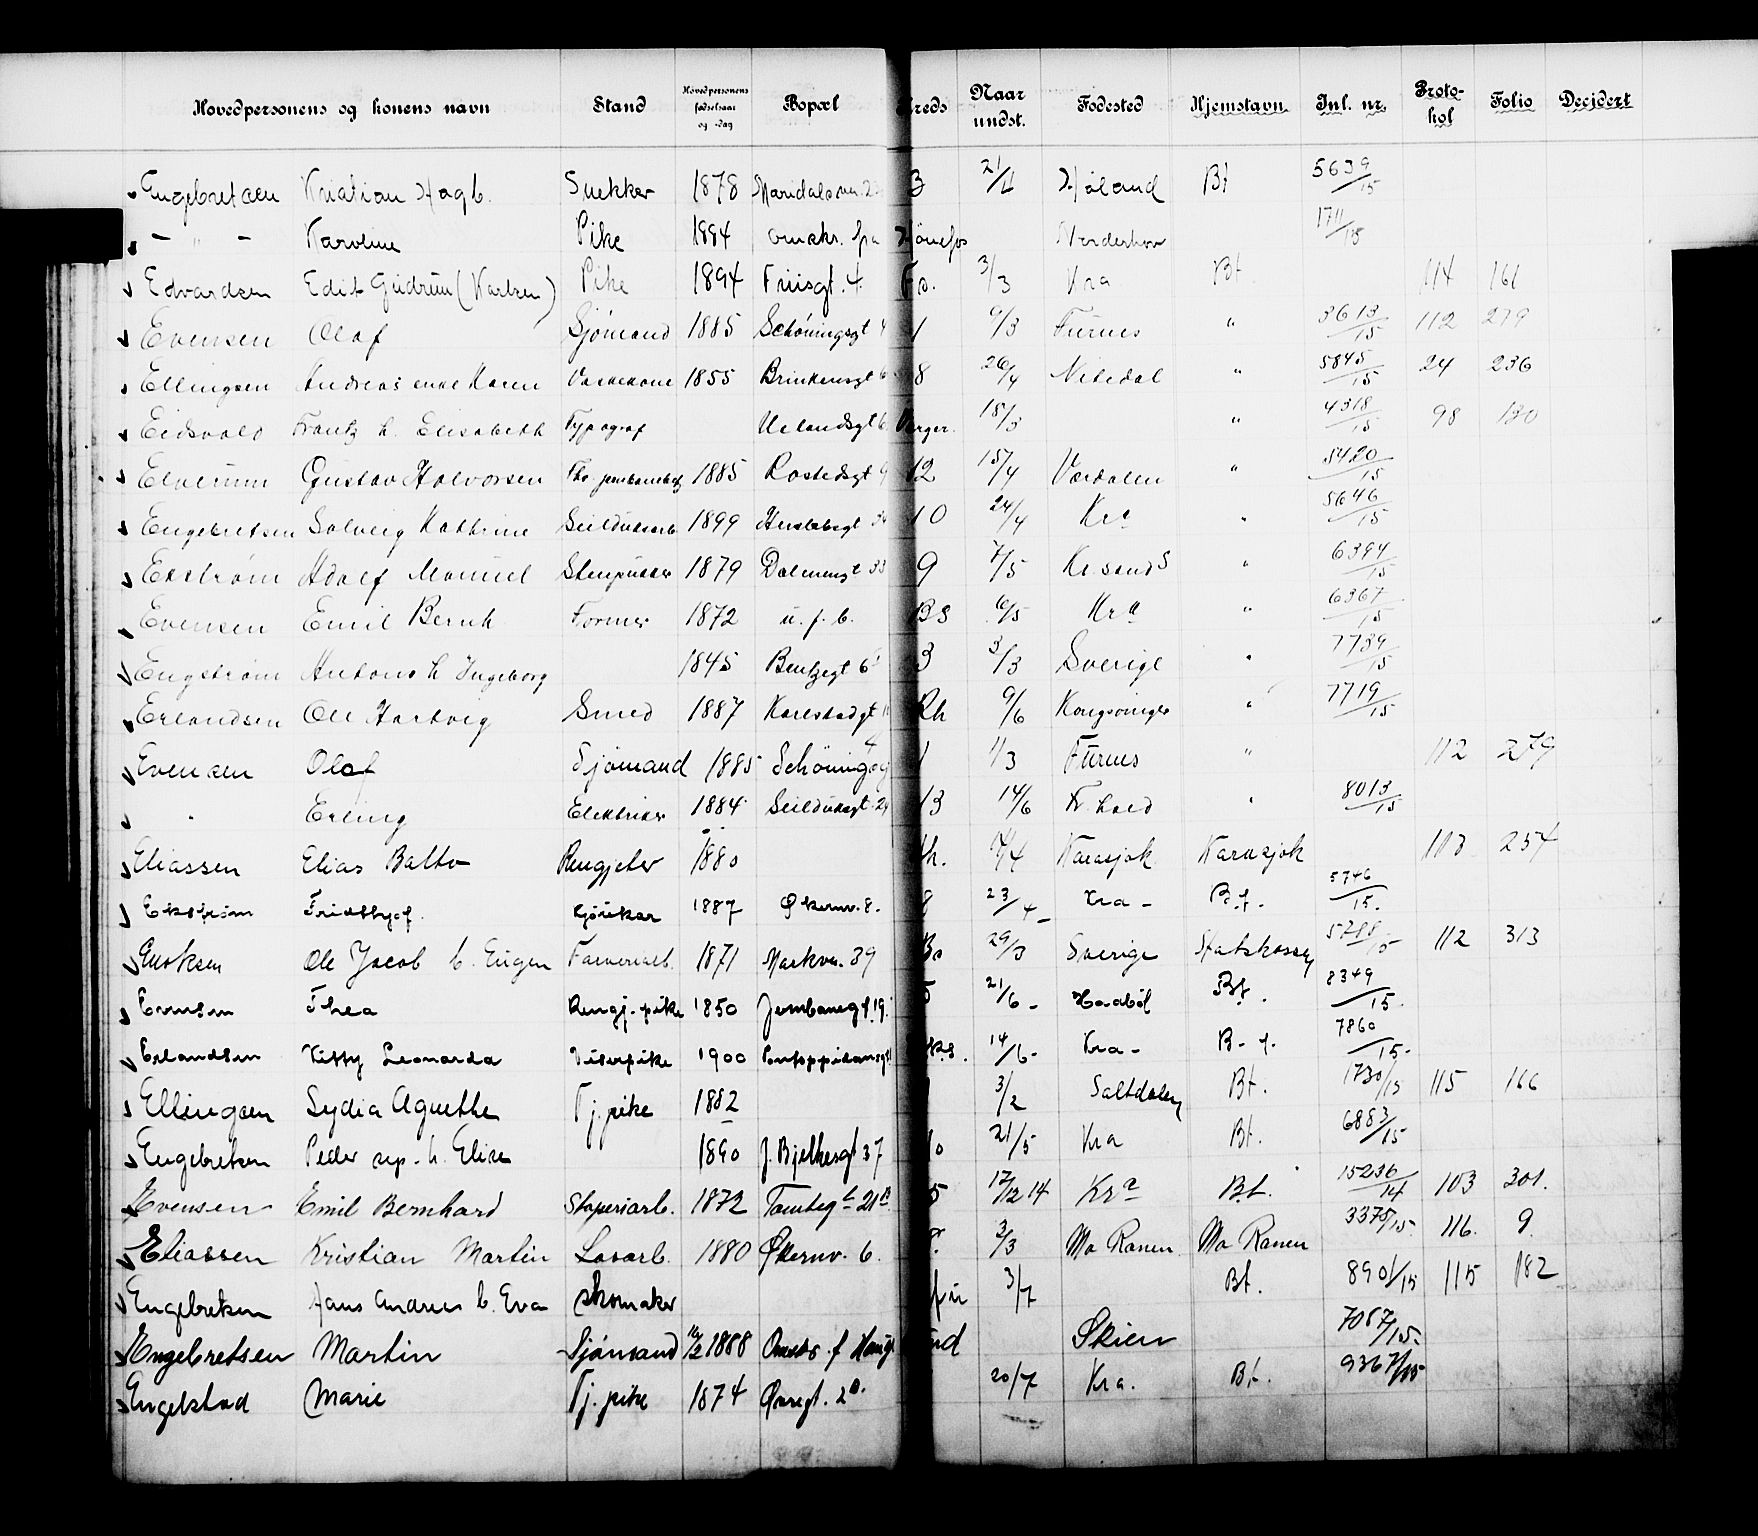 Hovedpersonens og konens navn Stand Hovedpersonens fødselsaar og -dag Bopæl Kreds Naar undst. Fødested Hjemstavn Inl. nr. Protokol Folio Decidert
Engebretsen Kristian Hagb. Snekker 1878 Maridalsvn. 3 21/4 Høland Bt 5639/15
— " — Karoline Pike 1894 omskr. fra Hönefos Norderhov 1711/15
Edvardsen Edit Gudrun (Karlsen) Pike 1894 Friisgt. 4. Fo. 3/3 Kra Bt. 114 161
Evensen Olaf Sjömand 1885 Schöningsgt 4 1 9/3 Furnes " 3613/15 112 279
Ellingsen Andreas enke Karen Vaskekone 1855 Brinkensgt 8 26/4 Nitedal " 5845/15 24 236
Eidsvold Frantz h. Elisabeth Typograf Uelandsgt 6 Varger. 18/3 " 4318/15 98 130
Elverum Gustav Halvorsen 1885 Rostedsgt 9 12 15/4 Værdalen " 5420/15
Engebretsen Solveig Kathrine Seilduksarb 1899 Herslebsgt 10 24/4 Kra " 5646/15
Ekström Adolf Manuel Stenpukker 1879 Dalenengt 33 9 7/5 Kr.sand S " 6394/15
Evensen Emil Bernh. Former 1872 u. f. b. BS 6/5 Kra " 6367/15
Engström Antons h Ingeborg 1845 Bentzegt 6 3 3/3 Sverige " 7739/15
Erlandsen Ole Hartvig Smed 1887 Karlstadgt Rh 9/6 Kongsvinger " 7719/15
Evensen Olaf Sjömand 1885 Schöningsg 4 1 1/3 Furnes " 112 279
" Erling Elektriker 1884 Seilduksgt. 13 14/6 Fr.hald " 8013/15
Eliassen Elias Balto Rengjeter 1880 Rh. /4 Karasjok Karasjok 113 254
Ekström Fridthjof. Kjörekar 1887 Økernv. 8. 8 23/4 - Kra - B.t. 5746/15.
Eriksen Ole Jacob h. Eugen Farveriarb. 1871 Markvn. 39 Bo 29/3 Sverige Statskassen 5788/15 112 313
Evensen Thea Rengj. pike 1850 Jernbanegt. 19. 5 21/6 - Hadböl Bt. 8349/15.
Erlandsen Kitty Leonarda Viserpike 1900 Pontoppidansgt 14/6 - Kra - B.t. 7860/15 -
Ellingsen Lydia Agnethe Tj. pike 1882 3/2 Saltdalen Bt. 1730/15 115 166
Engebretsen Peder sep. h. Elise 1890 J. Bjelkesgt 37 10 21/5 Kra Bt. 6883/15
Evensen Emil Bernhard Støperiarb. 1872 Tomtegt 21B 5 17/12 14 Kra Bt. 15236/14 103 301.
Eliassen Kristian Martin Løsarb. 1880 Økernv. 6. 3/3 Mo Ranen Mo Ranen 3375/15. 116. 9.
Engebretsen Hans Andreas h. Eva Skomaker 3/7 Bt. 8901/15 115 182
Engebretsen Martin Sjömand 14/2 1888 Omskr. f Haugesund Skien 7087/15.
Engelstad Marie Tj. pike 1874 Øvregt. 2B. 20/7 Kra. Bt. 9367/15